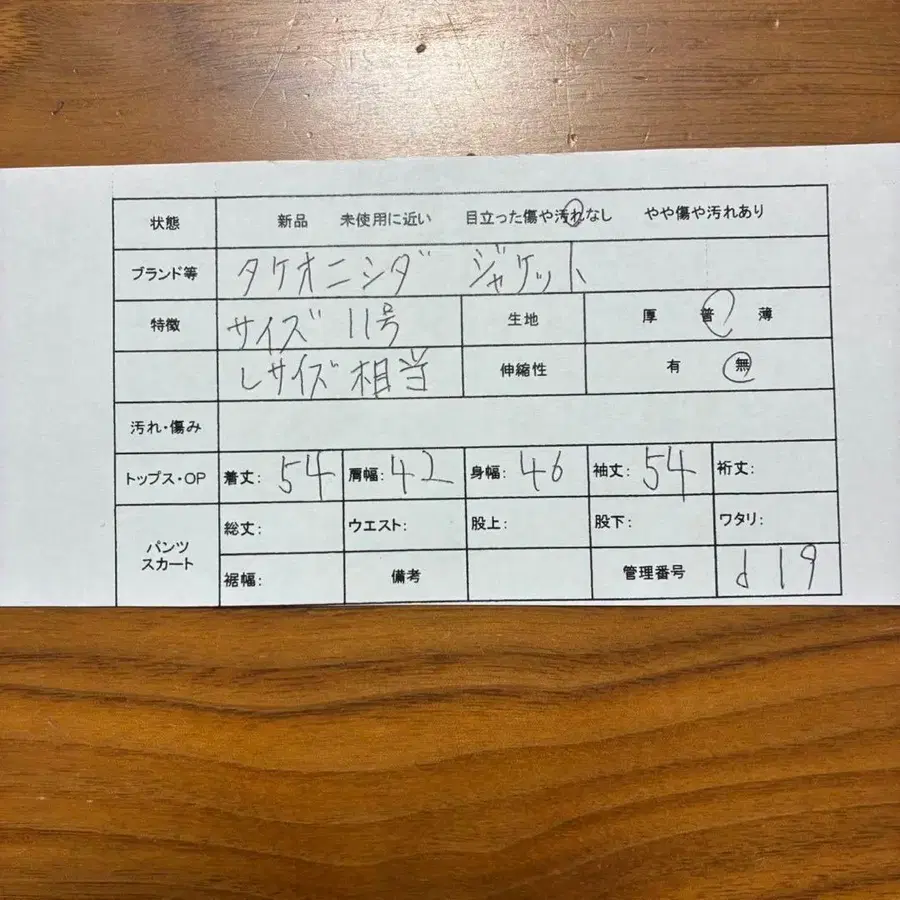 状態 新品 未使用に近い 目立った傷や汚れなし やや傷や汚れあり
ブランド等 タケオニシダ ジャケット
特徴 サイズ 11号 生地 厚 普 薄
Lサイズ相当 伸縮性 有 無
汚れ・傷み
トップス・OP 着丈: 54 肩幅: 42 身幅: 46 袖丈: 54 裄丈:
パンツ スカート 総丈: ウエスト: 股上: 股下: ワタリ:
裾幅: 備考 管理番号 d19